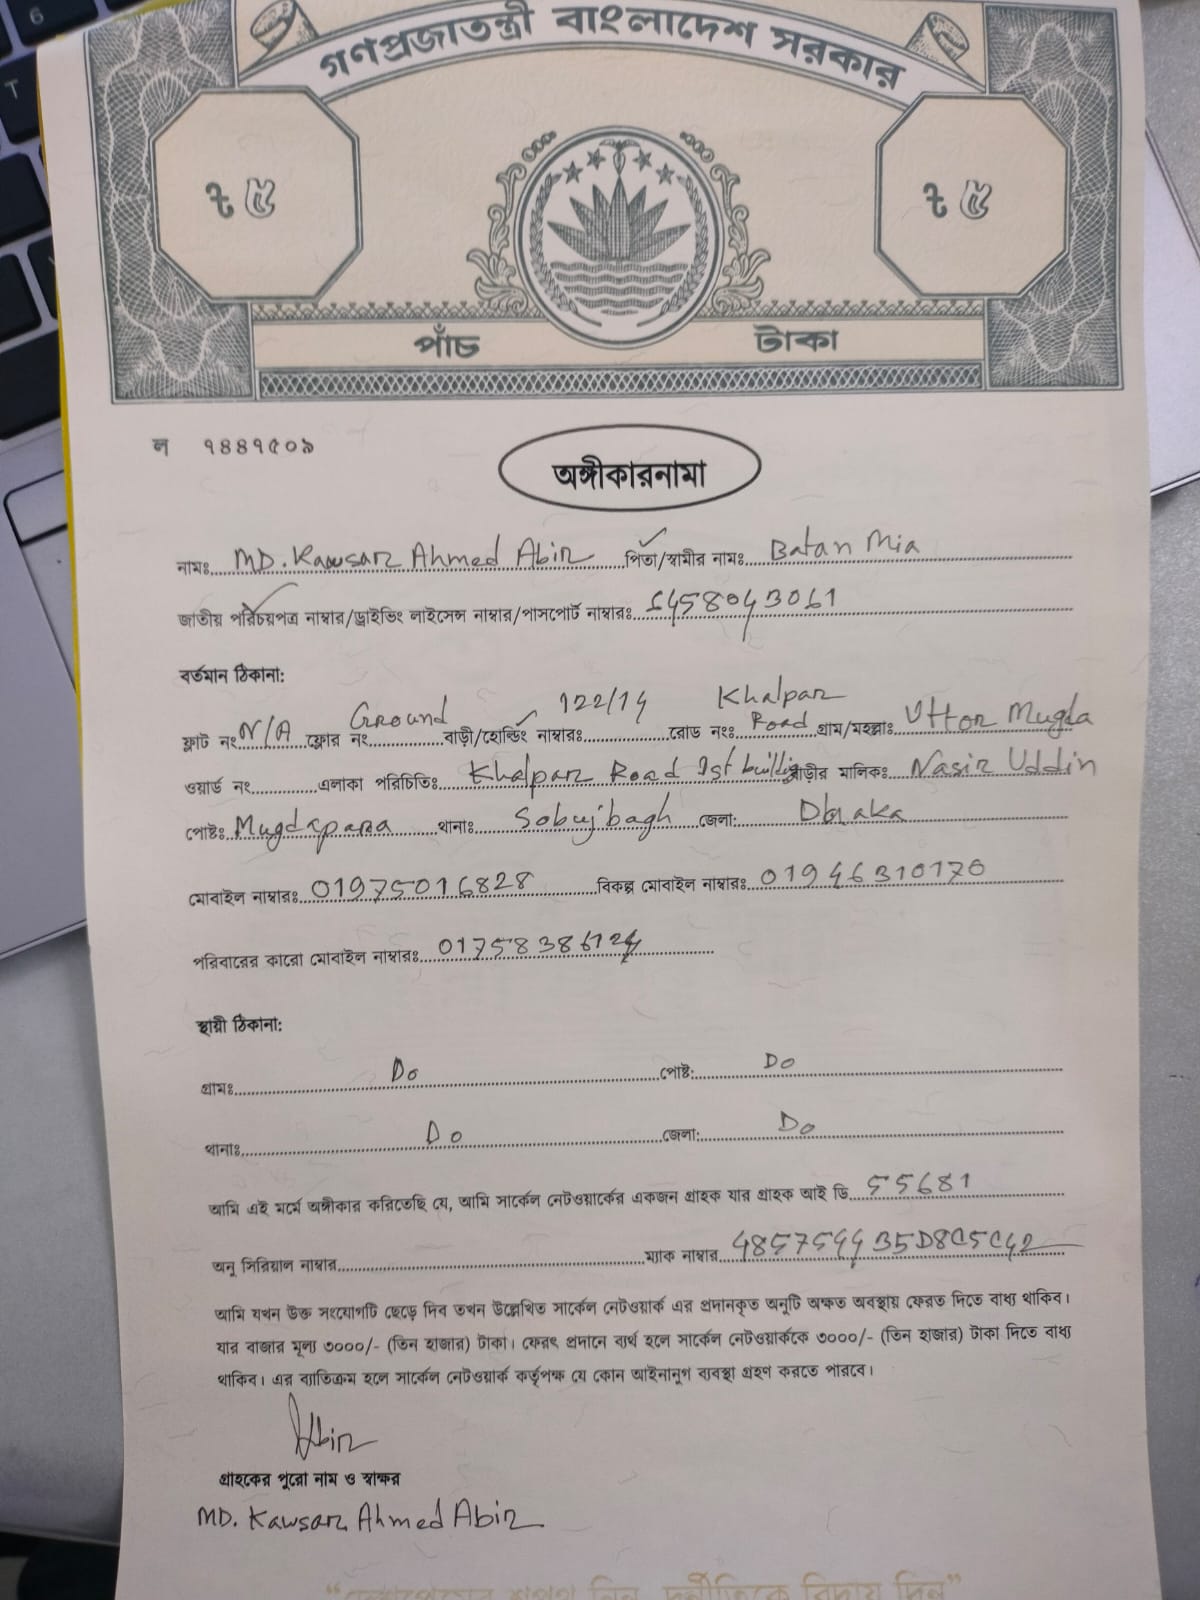 গণপ্রজাতন্ত্রী বাংলাদেশ সরকার
৳ ৫ ৳ ৫
পাঁচ টাকা
ল ৭৪৪৭৫০৯
অঙ্গীকারনামা
নামঃ MD. Kawsar Ahmed Abir পিতা/স্বামীর নামঃ Batan Mia
জাতীয় পরিচয়পত্র নাম্বার/ড্রাইভিং লাইসেন্স নাম্বার/পাসপোর্ট নাম্বারঃ 6458043061
বর্তমান ঠিকানা:
ফ্লাট নং N/A ফ্লোর নং Ground বাড়ী/হোল্ডিং নাম্বারঃ 122/14 রোড নংঃ Khalpar Road গ্রাম/মহল্লাঃ Uttor Mugda
ওয়ার্ড নং এলাকা পরিচিতিঃ Khalpar Road 1st বাড়ীর মালিকঃ Nasir Uddin
পোষ্টঃ Mugdapara থানাঃ Sobujbagh জেলা: Dhaka
মোবাইল নাম্বারঃ 01975016828 বিকল্প মোবাইল নাম্বারঃ 01946310170
পরিবারের কারো মোবাইল নাম্বারঃ 01758386124
স্থায়ী ঠিকানা:
গ্রামঃ Do পোষ্ট: Do
থানাঃ Do জেলা: Do
আমি এই মর্মে অঙ্গীকার করিতেছি যে, আমি সার্কেল নেটওয়ার্কের একজন গ্রাহক যার গ্রাহক আই ডি 55681
অনু সিরিয়াল নাম্বার ম্যাক নাম্বার 48575444 35D8C5C42
আমি যখন উক্ত সংযোগটি ছেড়ে দিব তখন উল্লেখিত সার্কেল নেটওয়ার্ক এর প্রদানকৃত অনুটি অক্ষত অবস্থায় ফেরত দিতে বাধ্য থাকিব।
যার বাজার মূল্য ৩০০০/- (তিন হাজার) টাকা। ফেরৎ প্রদানে ব্যর্থ হলে সার্কেল নেটওয়ার্ককে ৩০০০/- (তিন হাজার) টাকা দিতে বাধ্য
থাকিব। এর ব্যাতিক্রম হলে সার্কেল নেটওয়ার্ক কর্তৃপক্ষ যে কোন আইনানুগ ব্যবস্থা গ্রহণ করতে পারবে।
Abir
গ্রাহকের পুরো নাম ও স্বাক্ষর
MD. Kawsar Ahmed Abir